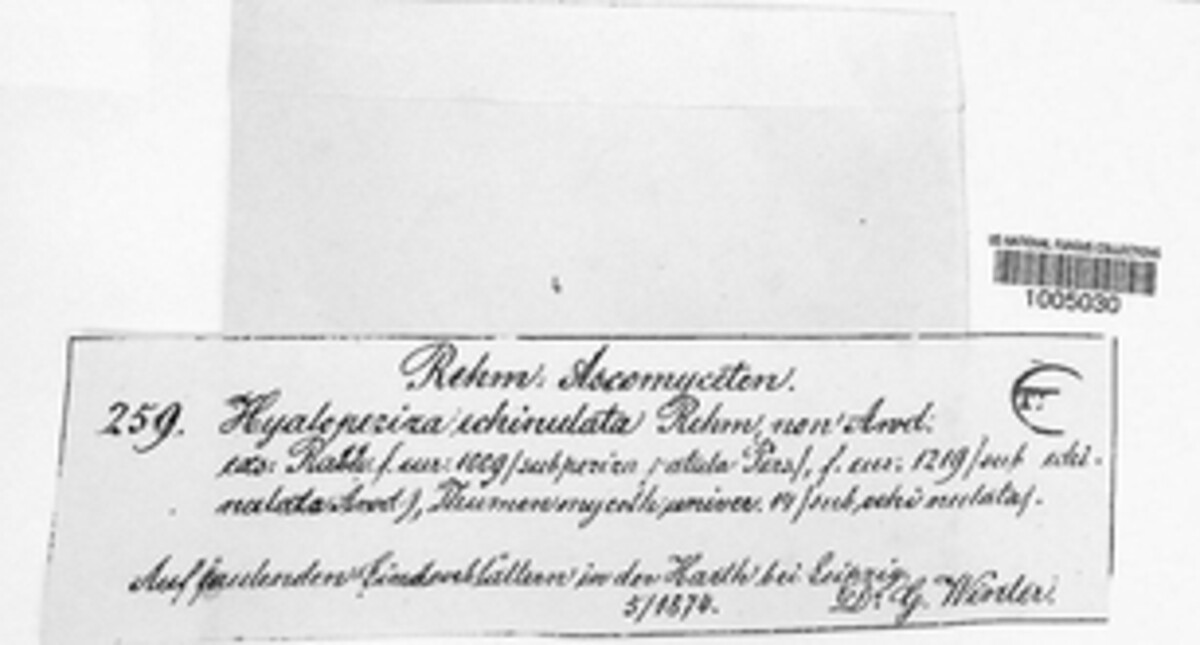 US NATIONAL FUNGUS COLLECTIONS
1005030
Rehm: Ascomyceten.
259. Hyalopeziza echinulata Rehm, non Awd.
exs: Rabh. f. eur: 1009/sub peziza patula Pers/, f. eur: 1219/sub echi-
nulata Awd), Thümen mycoth. univer. 14/sub echinulata/.
Auf faulenden blättern in der Harth bei Leipzig
5/1874. Dr. G. Winter.